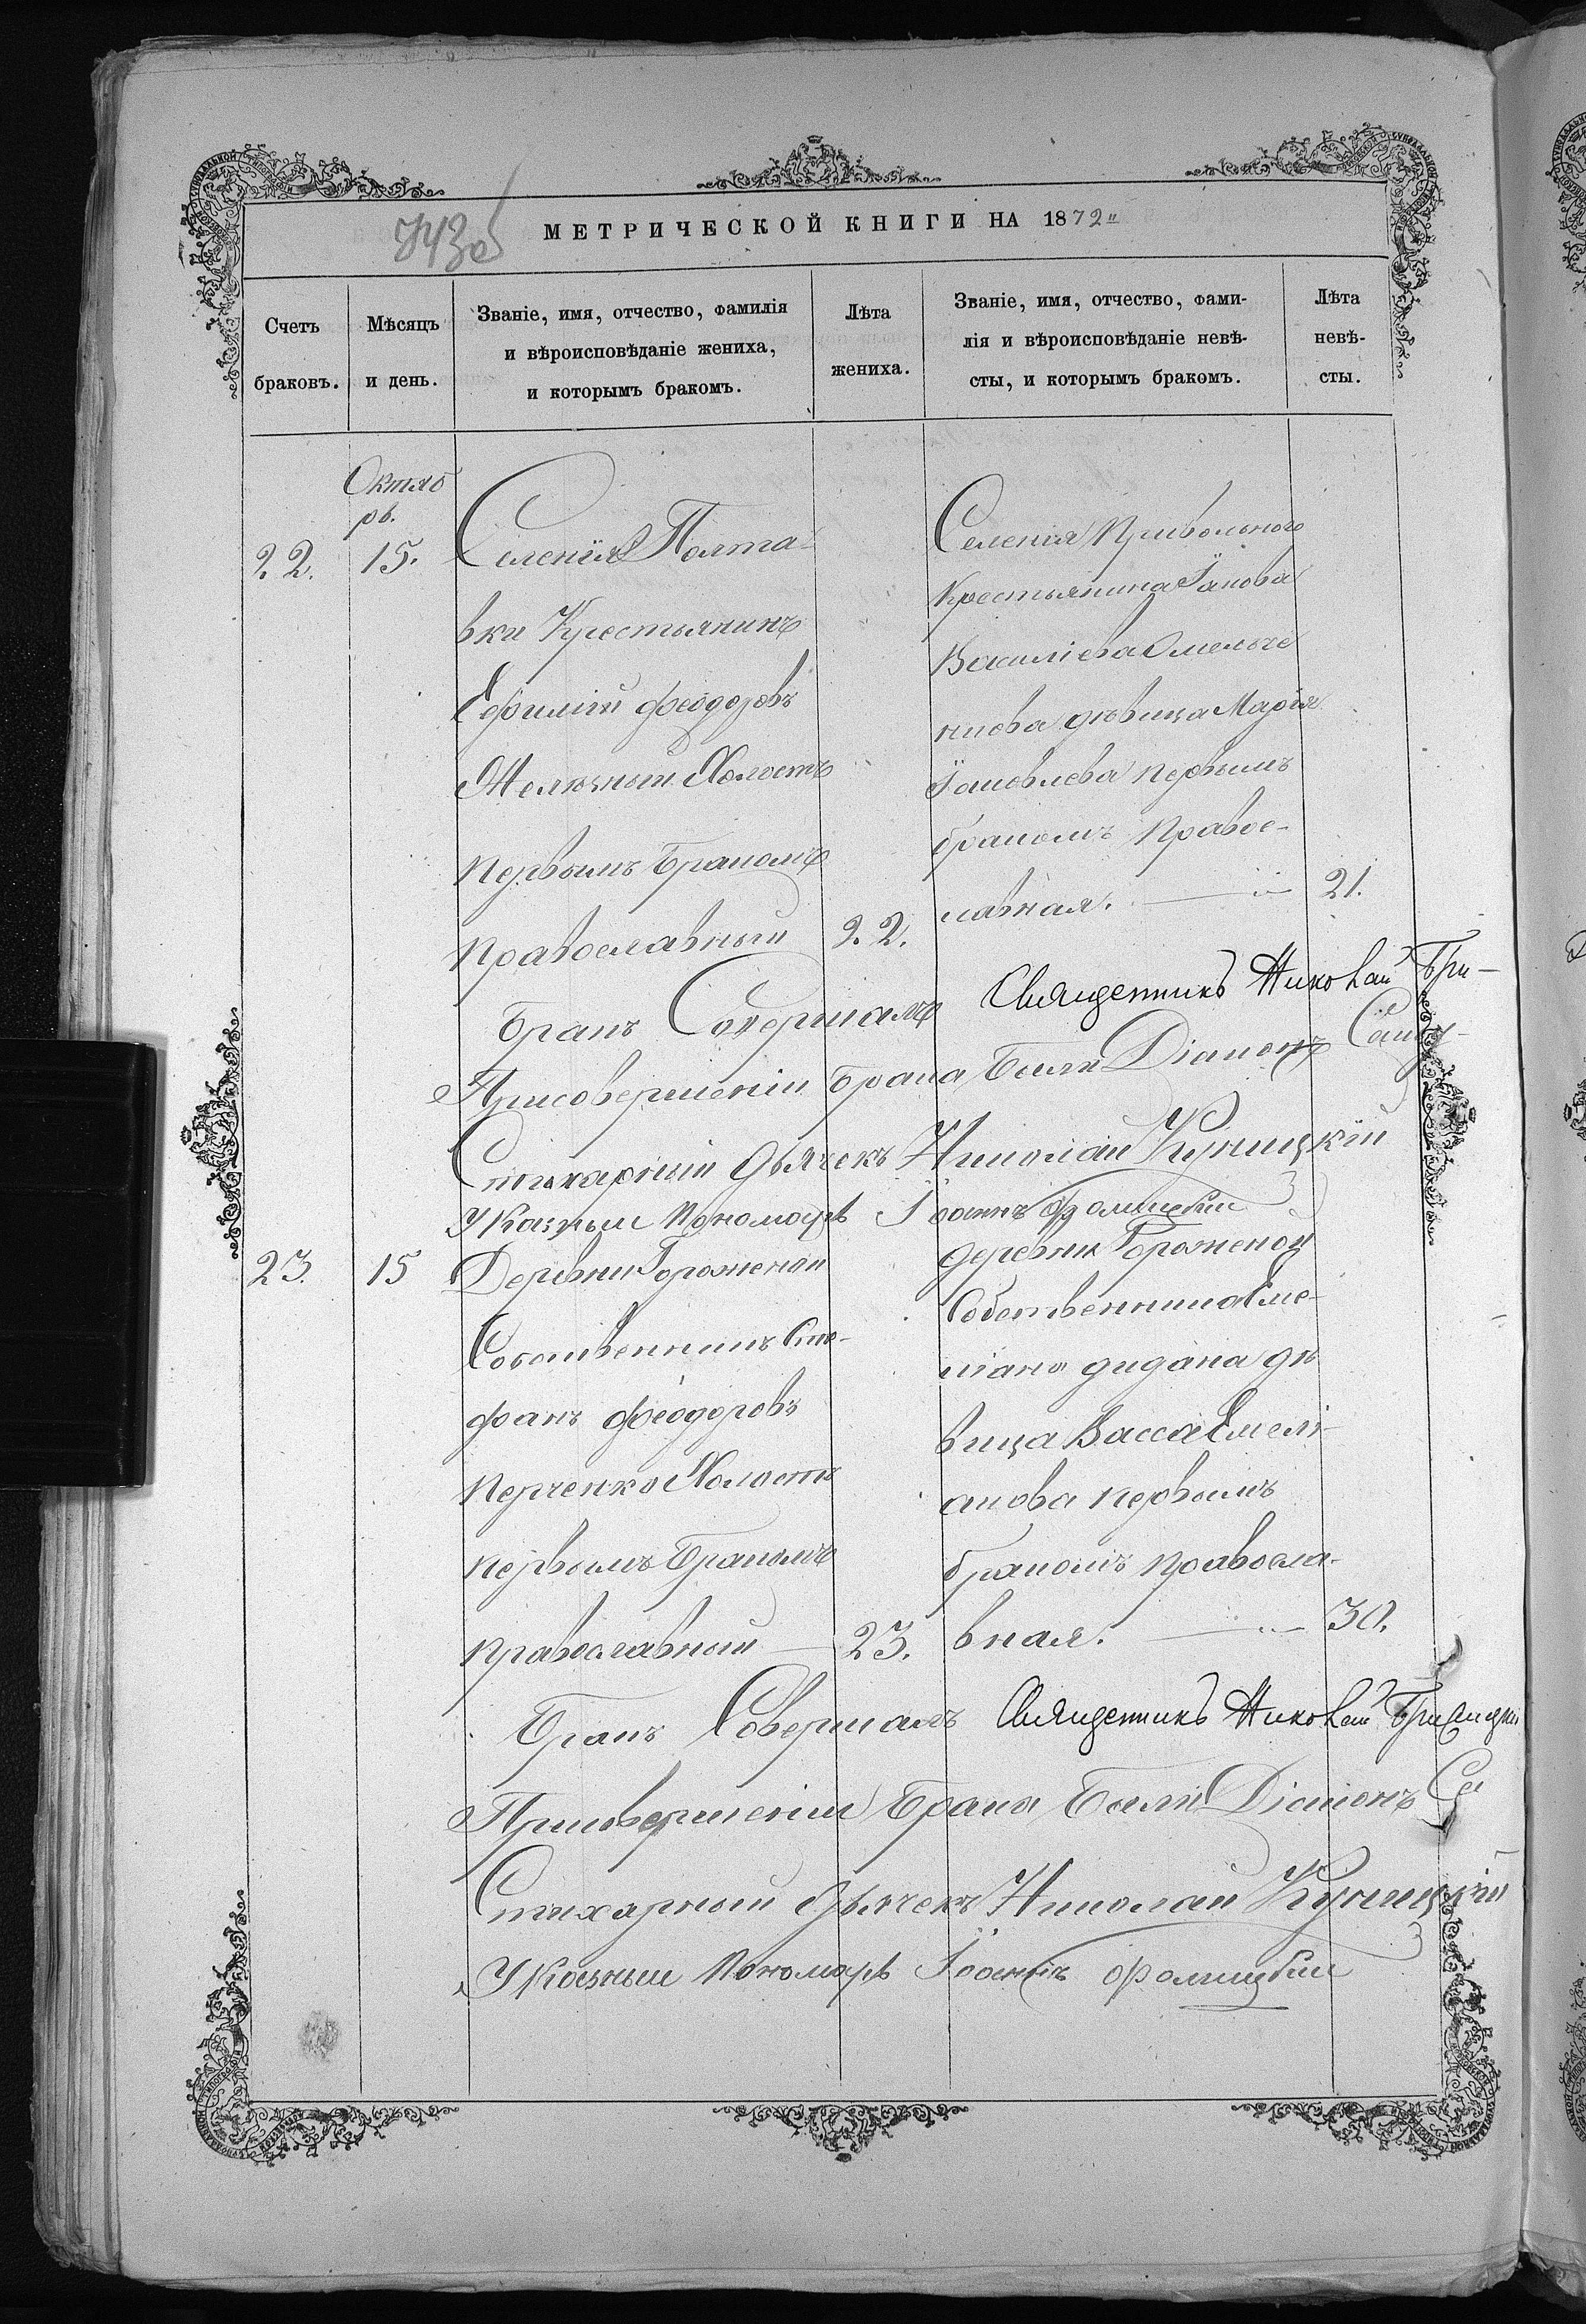 743об
МЕТРИЧЕСКОЙ КНИГИ НА 1872
Счетъ браковъ.
Мѣсяцъ и день.
Званіе, имя, отчество, фамилія
и вѣроисповѣданіе жениха,
и которымъ бракомъ.
Лѣта жениха.
Званіе, имя, отчество, фами-
лія и вѣроисповѣданіе невѣ-
сты, и которымъ бракомъ.
Лѣта
невѣ-
сты.
Октяб
рь.
22.
15.
Селенія Полта-
вки Крестьянинъ
Ефимій Феодоровъ
Холостъ
первымъ бракомъ
православный
22.
Селенія Привольнаго
Крестьянина Іакова
Василіева Омельче
нкова дѣвица Марія
Іаковлева первымъ
бракомъ правос-
лавная.
21.
Бракъ Совершалъ Священникъ Николай Бри-
Присовершеніи Брака были Діаконъ
Стихарный дьячекъ Николай Куницкій
Указный Пономарь Іоаннъ Фомицкій
23.
15
Деревни Гороженой
Собственникъ Сте-
фанъ Феодоровъ
Перченко Холостъ
первымъ Бракомъ
православный
23.
деревни Гороженой
Собственника Еме-
ліана Дидана дѣ
вица Васса Емелі-
анова первымъ
бракомъ правосла-
вная.
30.
Бракъ Совершалъ Священникъ Николай
Присовершеніи Брака были Діаконъ
Стихарный дьячекъ Николай Куницкій
Указный Пономарь Іоаннъ Фомицкій